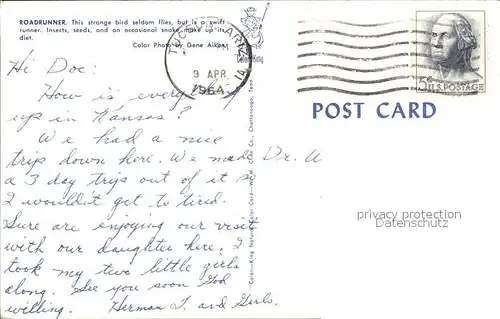 ROADRUNNER. This strange bird seldom flies, but is a swift
runner. Insects, seeds, and an occasional snake make up its
diet.
Color Photo by Gene Aiken
TUCSON, ARIZ.
9 APR
1964
5¢ U.S. POSTAGE
POST CARD
Hi Doc:
How is everything
up in Kansas?
We had a nice
trip down here. We made
a 3 day trips out of it so
I wouldn't get to tired.
Sure are enjoying our visit
with our daughter here. I
took my two little girls
along. See you soon God
willing. Herman T. and Girls.
Dr. U
privacy protection
DISCLAIMER